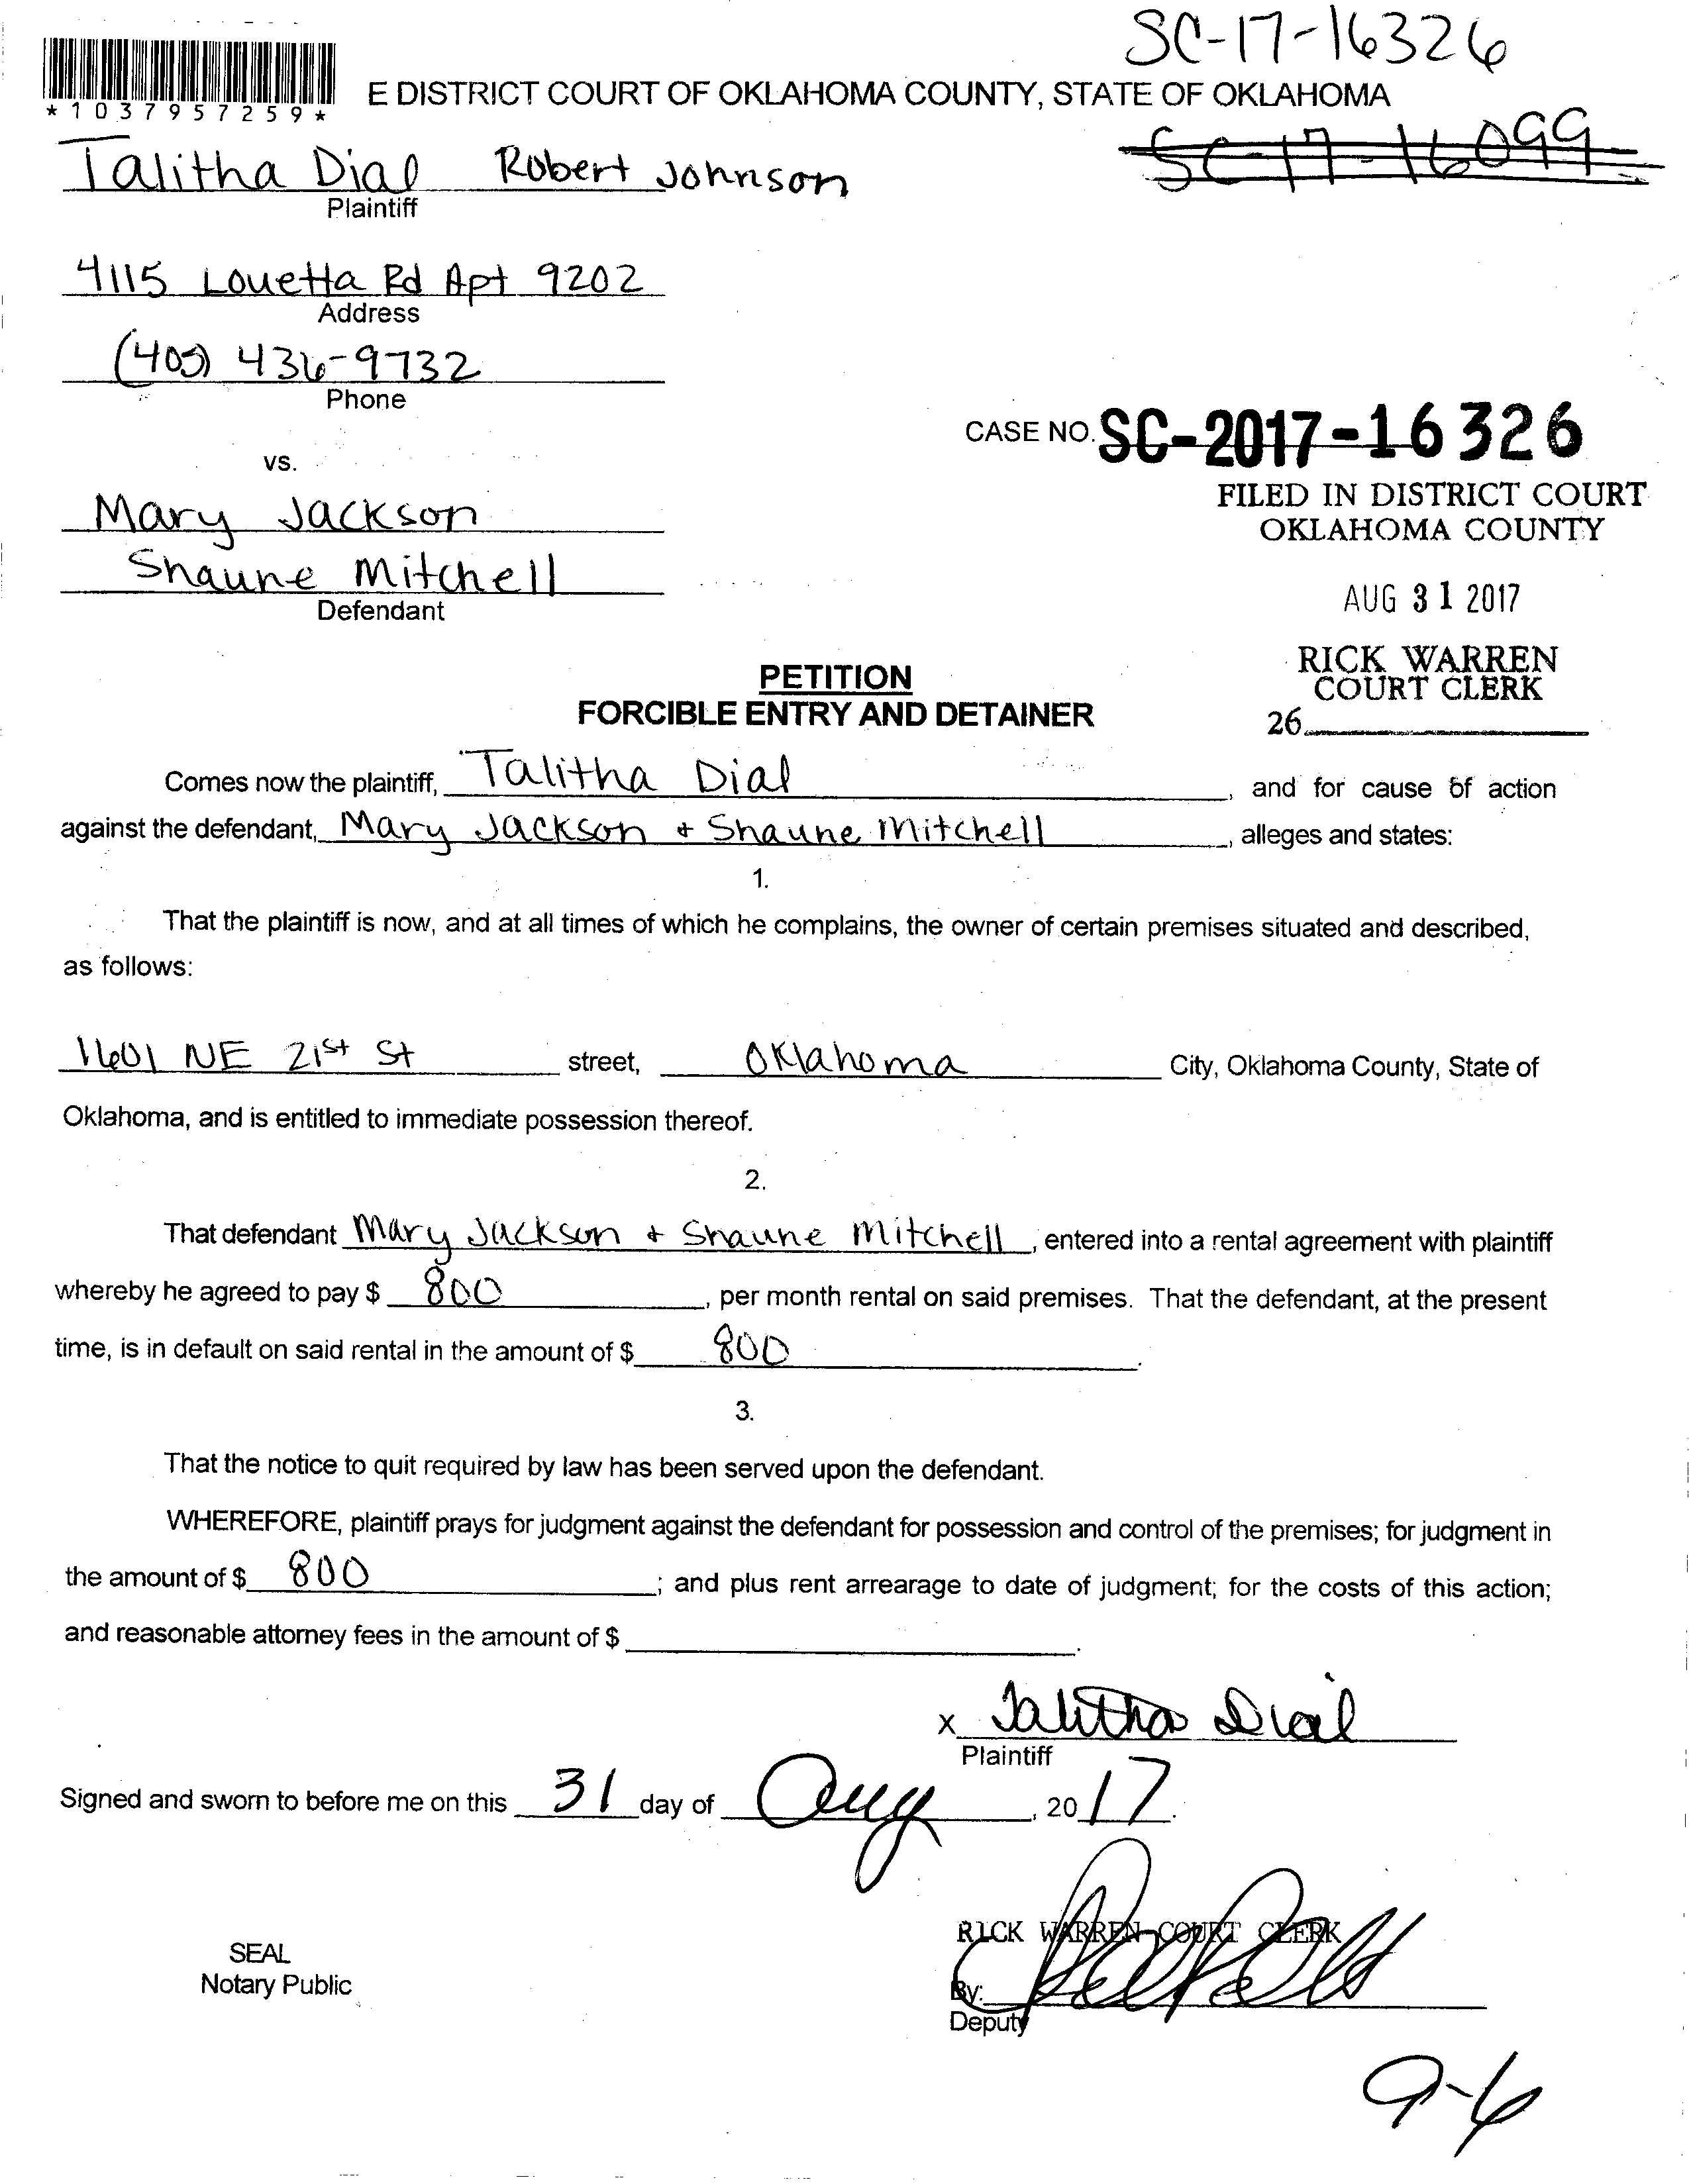 SC-17-16326
*1037957259*
E DISTRICT COURT OF OKLAHOMA COUNTY, STATE OF OKLAHOMA
SC-17-16099
Talitha Dial Robert Johnson
Plaintiff
4115 Louetta Rd Apt 9202
Address
(405) 436-9732
Phone
CASE NO. SC-2017-16326
vs.
FILED IN DISTRICT COURT
OKLAHOMA COUNTY
Mary Jackson
Shaune Mitchell
Defendant
AUG 31 2017
RICK WARREN
COURT CLERK
26
PETITION
FORCIBLE ENTRY AND DETAINER
Comes now the plaintiff, Talitha Dial, and for cause of action
against the defendant, Mary Jackson + Shaune Mitchell, alleges and states:
1.
That the plaintiff is now, and at all times of which he complains, the owner of certain premises situated and described,
as follows:
1601 NE 21st St street, Oklahoma City, Oklahoma County, State of
Oklahoma, and is entitled to immediate possession thereof.
2.
That defendant Mary Jackson + Shaune Mitchell, entered into a rental agreement with plaintiff
whereby he agreed to pay $ 800, per month rental on said premises. That the defendant, at the present
time, is in default on said rental in the amount of $ 800.
3.
That the notice to quit required by law has been served upon the defendant.
WHEREFORE, plaintiff prays for judgment against the defendant for possession and control of the premises; for judgment in
the amount of $ 800; and plus rent arrearage to date of judgment; for the costs of this action;
and reasonable attorney fees in the amount of $ .
x Talitha Dial
Plaintiff
Signed and sworn to before me on this 31 day of Aug, 2017.
RICK WARREN COURT CLERK
SEAL
Notary Public
By:
Deputy
9-6